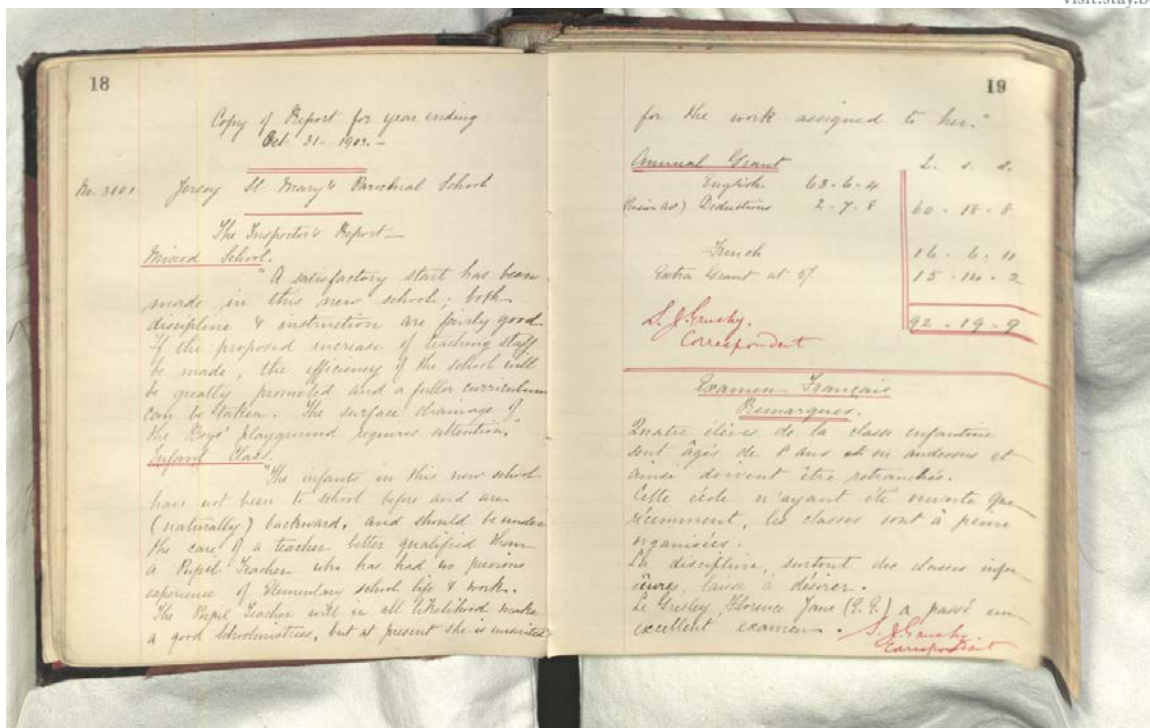 visit.stay.b
18
Copy of Report for year ending
Oct. 31 - 1902. -
No. 3101 Jersey St. Mary's Parochial School
The Inspector's Report -
Mixed School.
"A satisfactory start has been
made in this new school; both
discipline & instruction are fairly good
If the proposed increase of teaching staff
be made, the efficiency of the school will
be greatly promoted and a fuller curriculum
can be taken. The surface drainage of
the Boys' playground requires attention."
Infant Class.
"The infants in this new school
have not been to school before and are
(naturally) backward, and should be under
the care of a teacher better qualified than
a Pupil Teacher who has had no previous
experience of Elementary school life & work.
The Pupil Teacher will in all likelihood make
a good Schoolmistress, but at present she is unsuited
19
for the work assigned to her."
Annual Grant L. s. d.
English 63-6-4
Deductions 2-7-8 60-18-8
French 16-6-11
Extra Grant at 5/. 15-14-2
92-19-9
S. J. Gruchy.
Correspondent
Examen Français
Remarques.
Quatre élèves de la classe enfantine
sont âgés de ans et en audessous et
ainsi doivent être retranchés.
Cette école n'ayant été ouverte que
récemment, les classes sont à peine
organisées.
La discipline, surtout des classes infer-
ieures, laisse à désirer.
Le Gresley Florence Jane a passé un
excellent examen. S. J. Gruchy
Correspondent